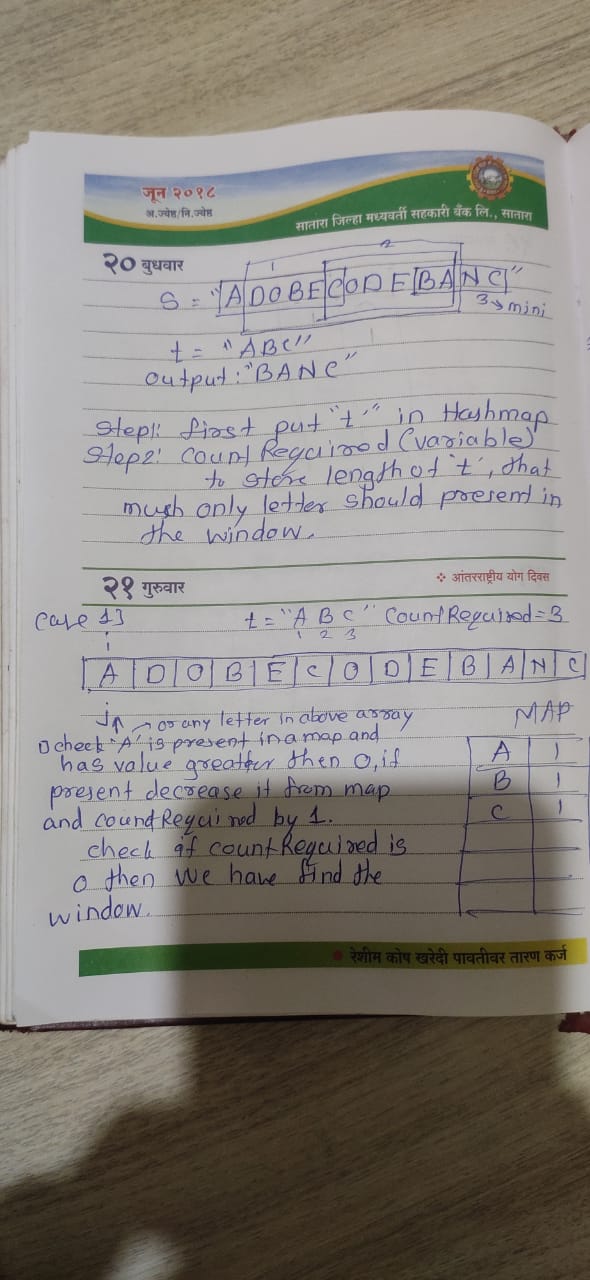 जून २०१८
अ.ज्येष्ठ/नि.ज्येष्ठ
सातारा जिल्हा मध्यवर्ती सहकारी बँक लि., सातारा
२० बुधवार
1 2
S = "ADOBECODEBANC"
3 → mini
t = "ABC"
output: "BANC"
Step1: first put "t" in Hashmap
Step2: Count Required (variable)
to store length of 't', that
mush only letter should present in
the window.
२१ गुरुवार
❖ आंतरराष्ट्रीय योग दिवस
Case 1] t = "A B C" Count Required = 3
i 1 2 3
A D O B E C O D E B A N C
J ↑ → or any letter in above array
MAP
① check 'A' is present in a map and
has value greatfer then 0, if
present decrease it from map
and coundRequired by 1.
check if countRequired is
0 then we have find the
window.
A 1
B 1
C 1
रेशीम कोष खरेदी पावतीवर तारण कर्ज